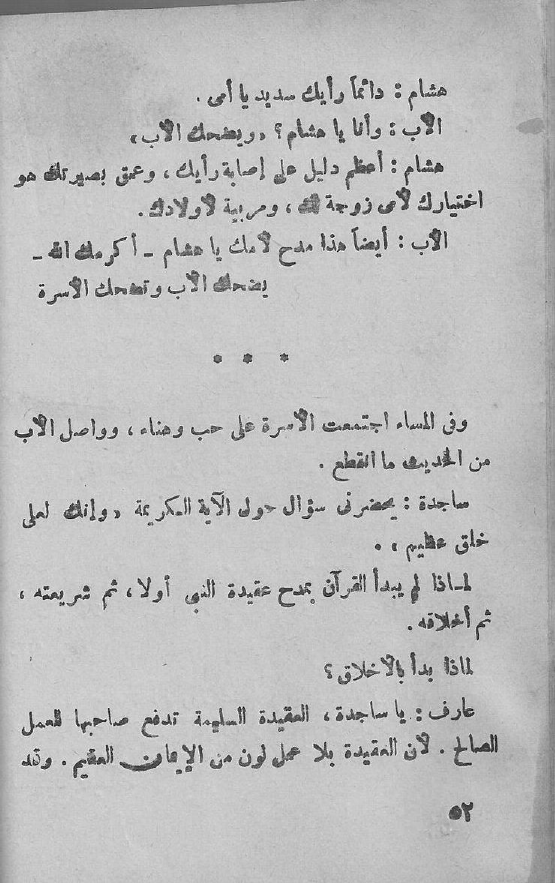 هشام : دائماً رأيك سديد يا أمى .
الأب : وأنا يا هشام ؟ «ويضحك الأب»
هشام : أعظم دليل على إصابة رأيك ، وعمق بصيرتك هو
اختيارك لأمى زوجة لك ، ومربية لأولادك .
الأب : أيضاً هذا مدح لأمك يا هشام ـ أكرمك الله ـ
يضحك الأب وتضحك الأسرة
* * *
وفى المساء اجتمعت الأسرة على حب وهناء ، وواصل الأب
من الحديث ما انقطع .
ساجدة : يحضرنى سؤال حول الآية الكريمة «وإنك لعلى
خلق عظيم » .
لماذا لم يبدأ القرآن بمدح عقيدة النبى أولا ، ثم شريعته ،
ثم أخلاقه .
لماذا بدأ بالأخلاق ؟
عارف : يا ساجدة ، العقيدة السليمة تدفع صاحبها للعمل
الصالح . لأن العقيدة بلا عمل لون من الإيمان العقيم . وقد
٥٢